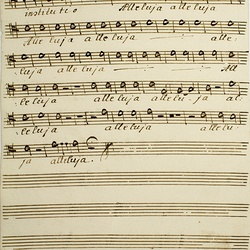 institutio Alleluja alleluja
alleluja alleluja alle
luja alleluja All
leluja alleluja allelu- ja al
leluja alleluja allelu-
ja alleluja.